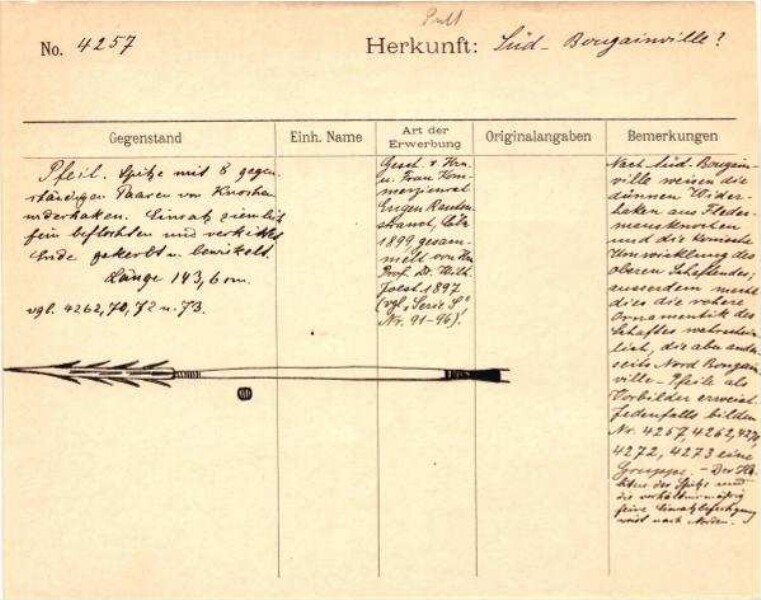 Pult
No. 4257
Herkunft: Süd-Bougainville?
Gegenstand
Einh. Name
Art der
Erwerbung
Originalangaben
Bemerkungen
Pfeil. Spitze mit 8 gegen-
ständigen Paaren von Knochen-
widerhaken. Einsatz ziemlich
fein beflochten und verkittet.
Ende gekerbt u. bewickelt.
Länge 143,6 cm.
vgl. 4262, 70, 72 u. 73.
Gesch. v. Hrn.
u. Frau Kom-
merzienrat
Eugen Rauten-
strauch, Cöln
1899, gesam-
melt von Hrn.
Prof. Dr. Wilh.
Joest 1897
(vgl. "Serie S"
Nr. 91-96).
Nach Süd-Bougain-
ville weisen die
dünnen Wider-
haken aus Fleder-
mausknochen
und die konische
Umwicklung des
oberen Schaftendes;
ausserdem macht
dies die rohere
Ornamentik des
Schaftes wahrschein-
lich, die aber ander-
seits Nord Bougain-
ville-Pfeile als
Vorbilder erweist.
Jedenfalls bilden
Nr. 4257, 4262, 4270,
4272, 4273 eine
Gruppe. - Der Ha-
bitus der Spitze und
die verhältnismäßig
feine Einsatzbefestigung
weist nach Norden.